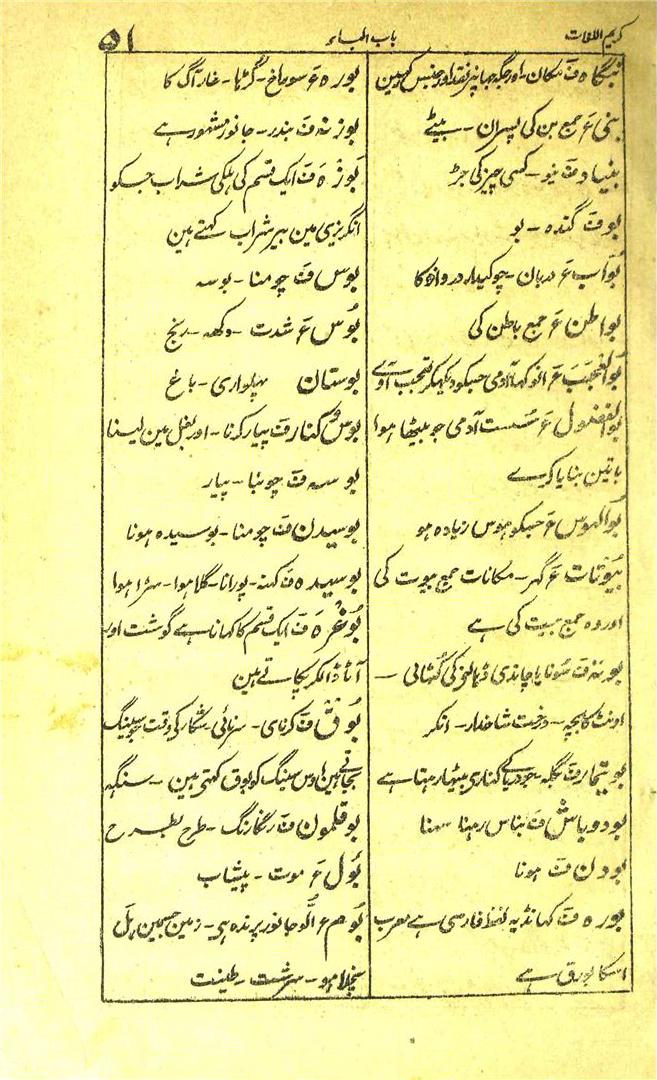 کریم اللغات
باب الباء
۵۱
بنگاہ ف مکان۔ اور جگہ جہانپر نقد اور جنس رکھین
بنی ع جمع بن کی پسران ۔ بیٹے
بنیاد ف نیو۔ کسی چیز کی جڑ
بو ف گندہ ۔ بو
بوّاب ع دربان ۔ چوکیدار دروازہ کا
بواطن ع جمع باطن کی
بوالعجب ع انوکھا آدمی جسکو دیکھکر تعجب آوے
بوالفضول ع سست آدمی جو بیٹھا ہوا
باتین بنایا کرے
بوالہوس ع جسکو ہوس زیادہ ہو
بیوتات ع گہر ۔ مکانات جمع بیوت کی
اور وہ جمع بیت کی ہے
بوتہ ف سونا یا چاندی ڈہالنے کی گٹھالی ۔
اونٹ کا بچہ ۔ درخت شاخدار ۔
بوتیمار ف بگلہ ۔ جو دریا کے کناری بیٹھا رہتا ہے
بود و باش ف بناس رہنا سہنا
بودن ف ہونا
بورہ ف کہانڈ یہ لفظ فارسی ہے معرب
اسکا بورق ہے
بورہ ع سوراخ ۔ گڑہا ۔ غار آگ کا
بوزنہ ف بندر ۔ جانور مشہور ہے
بوزہ ف ایک قسم کی ہلکی شراب جسکو
انگریزی مین بیر شراب کہتے ہین
بوس ف چومنا ۔ بوسہ
بُوس ع شدت ۔ دکھہ ۔ رنج
بوستان پہلواری ۔ باغ
بوس و کنار ف پیار کرنا ۔ اور بغل مین لینا
بوسہ ف چوبنا ۔ پیار
بوسیدن ف چومنا ۔ بوسیدہ ہونا
بوسیدہ ف کہنہ ۔ پورانا ۔ گلا ہوا ۔ سڑا ہوا
بُوغرہ ف ایک قسم کا کہانا ہے گوشت اور
آٹا ڈالکر پکاتے ہین
بُوق ف کرنای ۔ سرنائی شکار کی وقت جو سینگ
بجاتے ہین اوس سینگ کو بوق کہتی ہین ۔ سنگہہ
بوقلمون ف رنگارنگ ۔ طرح بطرح
بَول ع موت ۔ پیشاب
بوم ع اُلّو جانور پرندہ ہی ۔ زمین جسمین ہل
نچلا ہو ۔ سرشت ۔ طینت